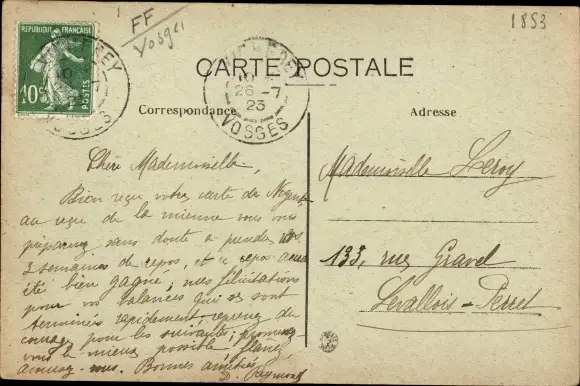 FF
Vosges
1853
REPUBLIQUE FRANÇAISE
10c
POSTES
VOSGES
26-7
23
VOSGES
CARTE POSTALE
Correspondance
Adresse
Chère Mademoiselle,
Bien reçu votre carte de Nogent,
au reçu de la mienne vous vous
préparez sans doute à prendre vos
3 semaines de repos, et ce repos aura
été bien gagné; mes félicitations
pour vos balances qui se sont
terminées rapidement, reprenez du
courage pour les suivants; promenez
vous le mieux possible, flânez
amusez-vous. Bonnes amitiés
D. Raymond
Mademoiselle Leroy
133, rue Gravel
Levallois-Perret